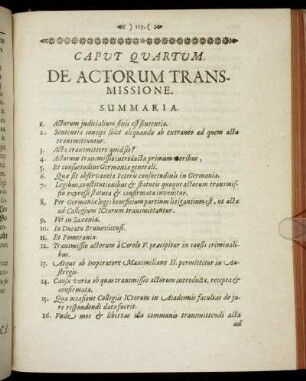 ) 115. (
CAPUT QUARTUM.
DE ACTORUM TRANS-
MISSIONE.
SUMMARIA.
1. Actorum judicialium finis est sententia.
2. Sententia concipi solet aliquando ab extraneo ad quem acta
transmittuntur.
3. Acta transmittere quid sit?
4. Actorum transmissio introducta primum moribus,
5. Et consuetudine Germaniæ generali.
6. Qua sit observantia veteris consuetudinis in Germania.
7. Legibus, constitutionibus & statutis quoque actorum transmis-
sio expresse statuta & confirmata invenitur.
8. Per Germaniæ leges beneficium partium litigantium est, ut acta
ad Collegium ICtorum transmittantur.
9. Vti in Saxonia.
10. In Ducatu Brunsvicensi.
11. Et Pomerania.
12. Transmissio actorum à Carolo V. præcipitur in causis criminali-
bus.
13. Atque ab Imperatore Maximiliano II. permittitur in Au-
stregis.
14. Causæ variæ ob quas transmissio actorum introducta, recepta &
confirmata.
15. Qua occasione Collegiis ICtorum in Academiis facultas de ju-
re respondendi data fuerit.
16. Vnde mos & libertas illa communis transmittendi acta
ad